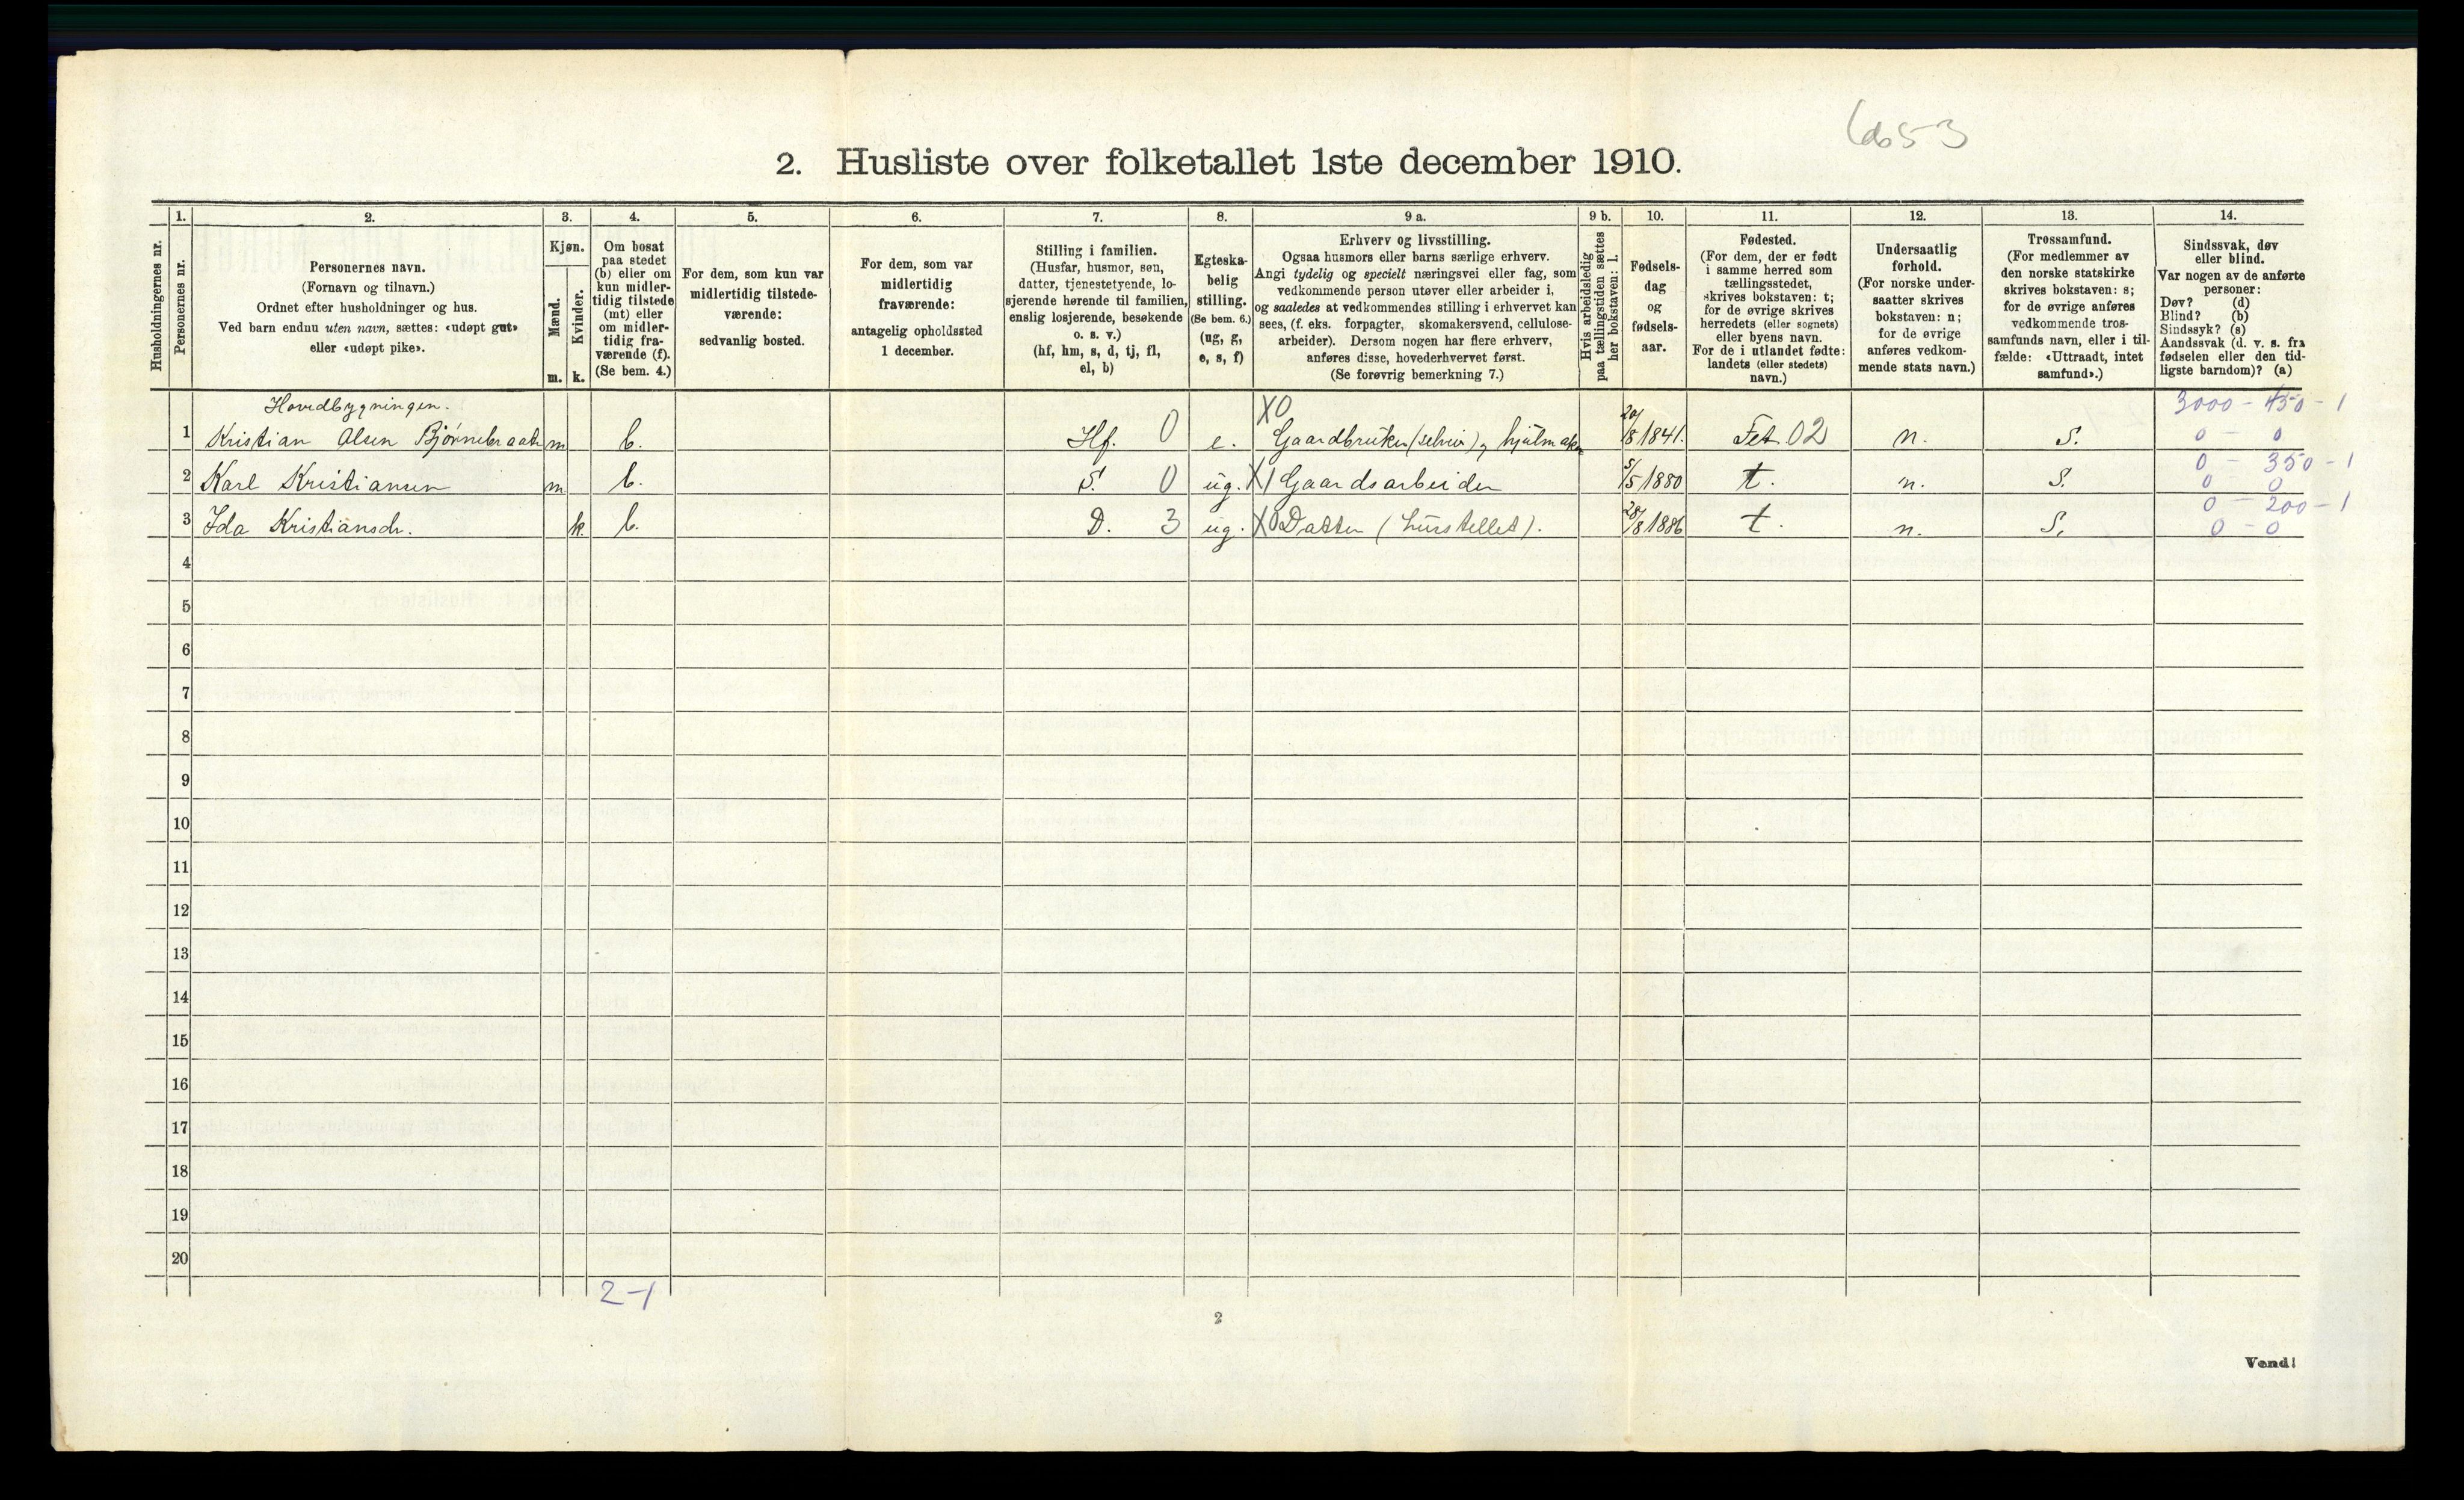 6653
2. Husliste over folketallet 1ste december 1910.
Husholdningernes nr.
1.
Personernes nr.
2.
Personernes navn.
(Fornavn og tilnavn.)
Ordnet efter husholdninger og hus.
Ved barn endnu uten navn, sættes: «udøpt gut»
eller «udøpt pike».
3.
Kjøn.
Mænd.
m.
Kvinder.
k.
4.
Om bosat
paa stedet
(b) eller om
kun midler-
tidig tilstede
(mt) eller
om midler-
tidig fra-
værende (f).
(Se bem. 4.)
5.
For dem, som kun var
midlertidig tilstede-
værende:
sedvanlig bosted.
6.
For dem, som var
midlertidig
fraværende:
antagelig opholdssted
1 december.
7.
Stilling i familien.
(Husfar, husmor, søn,
datter, tjenestetyende, lo-
sjerende hørende til familien,
enslig losjerende, besøkende
o. s. v.)
(hf, hm, s, d, tj, fl,
el, b)
8.
Egteska-
belig
stilling.
(Se bem. 6.)
(ug, g,
e, s, f)
9 a.
Erhverv og livsstilling.
Ogsaa husmors eller barns særlige erhverv.
Angi tydelig og specielt næringsvei eller fag, som
vedkommende person utøver eller arbeider i,
og saaledes at vedkommendes stilling i erhvervet kan
sees, (f. eks. forpagter, skomakersvend, cellulose-
arbeider). Dersom nogen har flere erhverv,
anføres disse, hovederhvervet først.
(Se forøvrig bemerkning 7.)
9 b.
Hvis arbeidsledig
paa tællingstiden sættes
her bokstaven: l.
10.
Fødsels-
dag
og
fødsels-
aar.
11.
Fødested.
(For dem, der er født
i samme herred som
tællingsstedet,
skrives bokstaven: t;
for de øvrige skrives
herredets (eller sognets)
eller byens navn.
For de i utlandet fødte:
landets (eller stedets)
navn.)
12.
Undersaatlig
forhold.
(For norske under-
saatter skrives
bokstaven: n;
for de øvrige
anføres vedkom-
mende stats navn.)
13.
Trossamfund.
(For medlemmer av
den norske statskirke
skrives bokstaven: s;
for de øvrige anføres
vedkommende tros-
samfunds navn, eller i til-
fælde: «Uttraadt, intet
samfund».)
14.
Sindssvak, døv
eller blind.
Var nogen av de anførte
personer:
Døv? (d)
Blind? (b)
Sindssyk? (s)
Aandssvak (d. v. s. fra
fødselen eller den tid-
ligste barndom)? (a)
Hovedbygningen. X0 3000 - 450 - 1
1 Kristian Olsen Bjørnebraatn m b. Hf. 0 e. Gaardbruker (selveier), hjulmaker 20/8 1841. Fet 02 n. S. 0 - 0
0 - 350 - 1
2 Karl Kristiansen m b. S. 0 ug. X1 Gaardsarbeider 5/5 1880 t. n. S. 0 0
0 - 200 - 1
3 Ida Kristiansdr. k. b. D. 3 ug. X0 Datter (husstellet). 28/8 1886 t. n. S. 0 - 0
4
5
6
7
8
9
10
11
12
13
14
15
16
17
18
19
20
2-1
2
Vend!